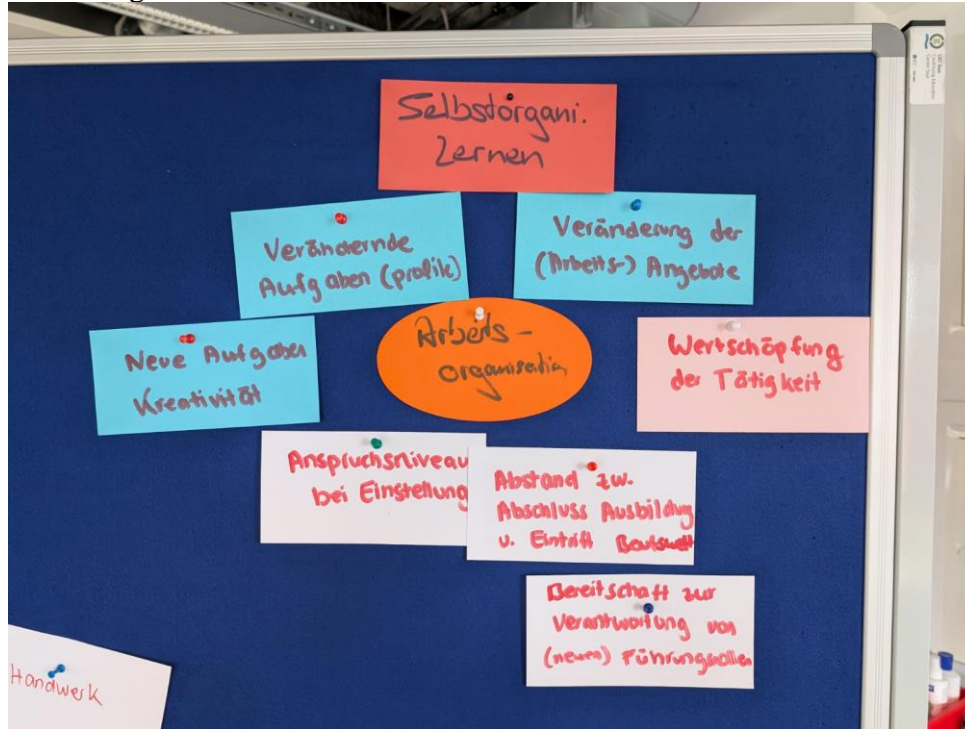 Selbstorgani.
Lernen
Verändernde
Aufgaben (profile)
Veränderung der
(Arbeits-) Angebote
Neue Aufgaben
Kreativität
Arbeits-
organisation
Wertschöpfung
der Tätigkeit
Anspruchsniveau
bei Einstellung
Abstand zw.
Abschluss Ausbildung
u. Eintritt Berufswelt
Bereitschaft zur
Verantwortung von
(neuen) Führungsrollen
Handwerk